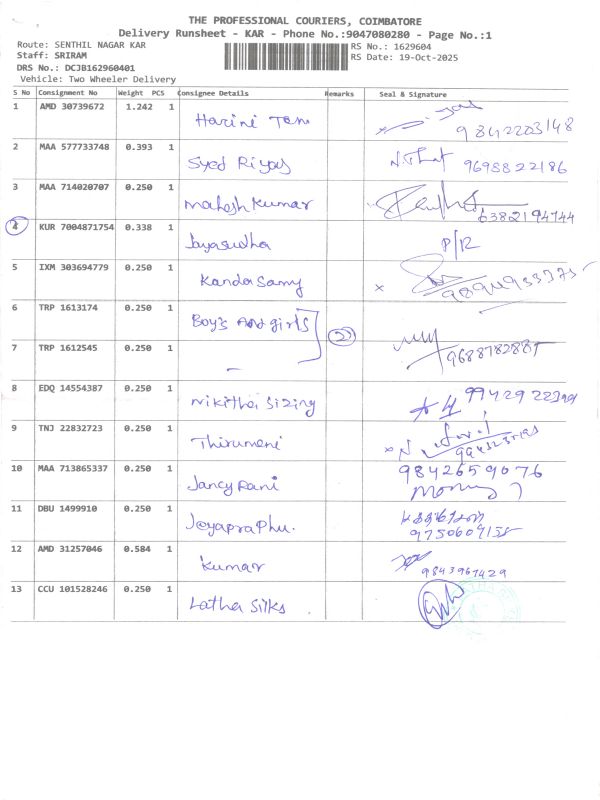 THE PROFESSIONAL COURIERS, COIMBATORE
Delivery Runsheet - KAR - Phone No.:9047080280 - Page No.:1
Route: SENTHIL NAGAR KAR
RS No.: 1629604
Staff: SRIRAM
RS Date: 19-Oct-2025
DRS No.: DCJB162960401
Vehicle: Two Wheeler Delivery
S No Consignment No Weight PCS Consignee Details Remarks Seal & Signature
1 AMD 30739672 1.242 1
Harini
2 MAA 577733748 0.393 1
Syed Riyas 9698822186
3 MAA 714020707 0.250 1
Mahesh Kumar 6382194744
4 KUR 7004871754 0.338 1
Jayasudha P/R
5 IXM 303694779 0.250 1
Kanda Samy
6 TRP 1613174 0.250 1
Boy's And girls 2
7 TRP 1612545 0.250 1
8 EDQ 14554387 0.250 1
Nikitha Sizing
9 TNJ 22832723 0.250 1
Thirumeni
10 MAA 713865337 0.250 1 9842659076
Jancy Rani
11 DBU 1499910 0.250 1
Jeyapraphu.
12 AMD 31257046 0.584 1
Kumar 9843967429
13 CCU 101528246 0.250 1
Latha Silks